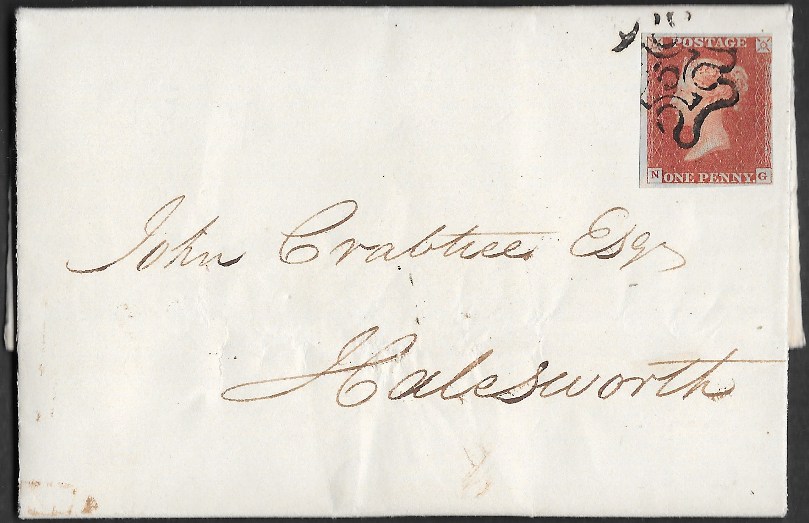 POSTAGE
N G
ONE PENNY.
John Crabtree Esqr
Halesworth